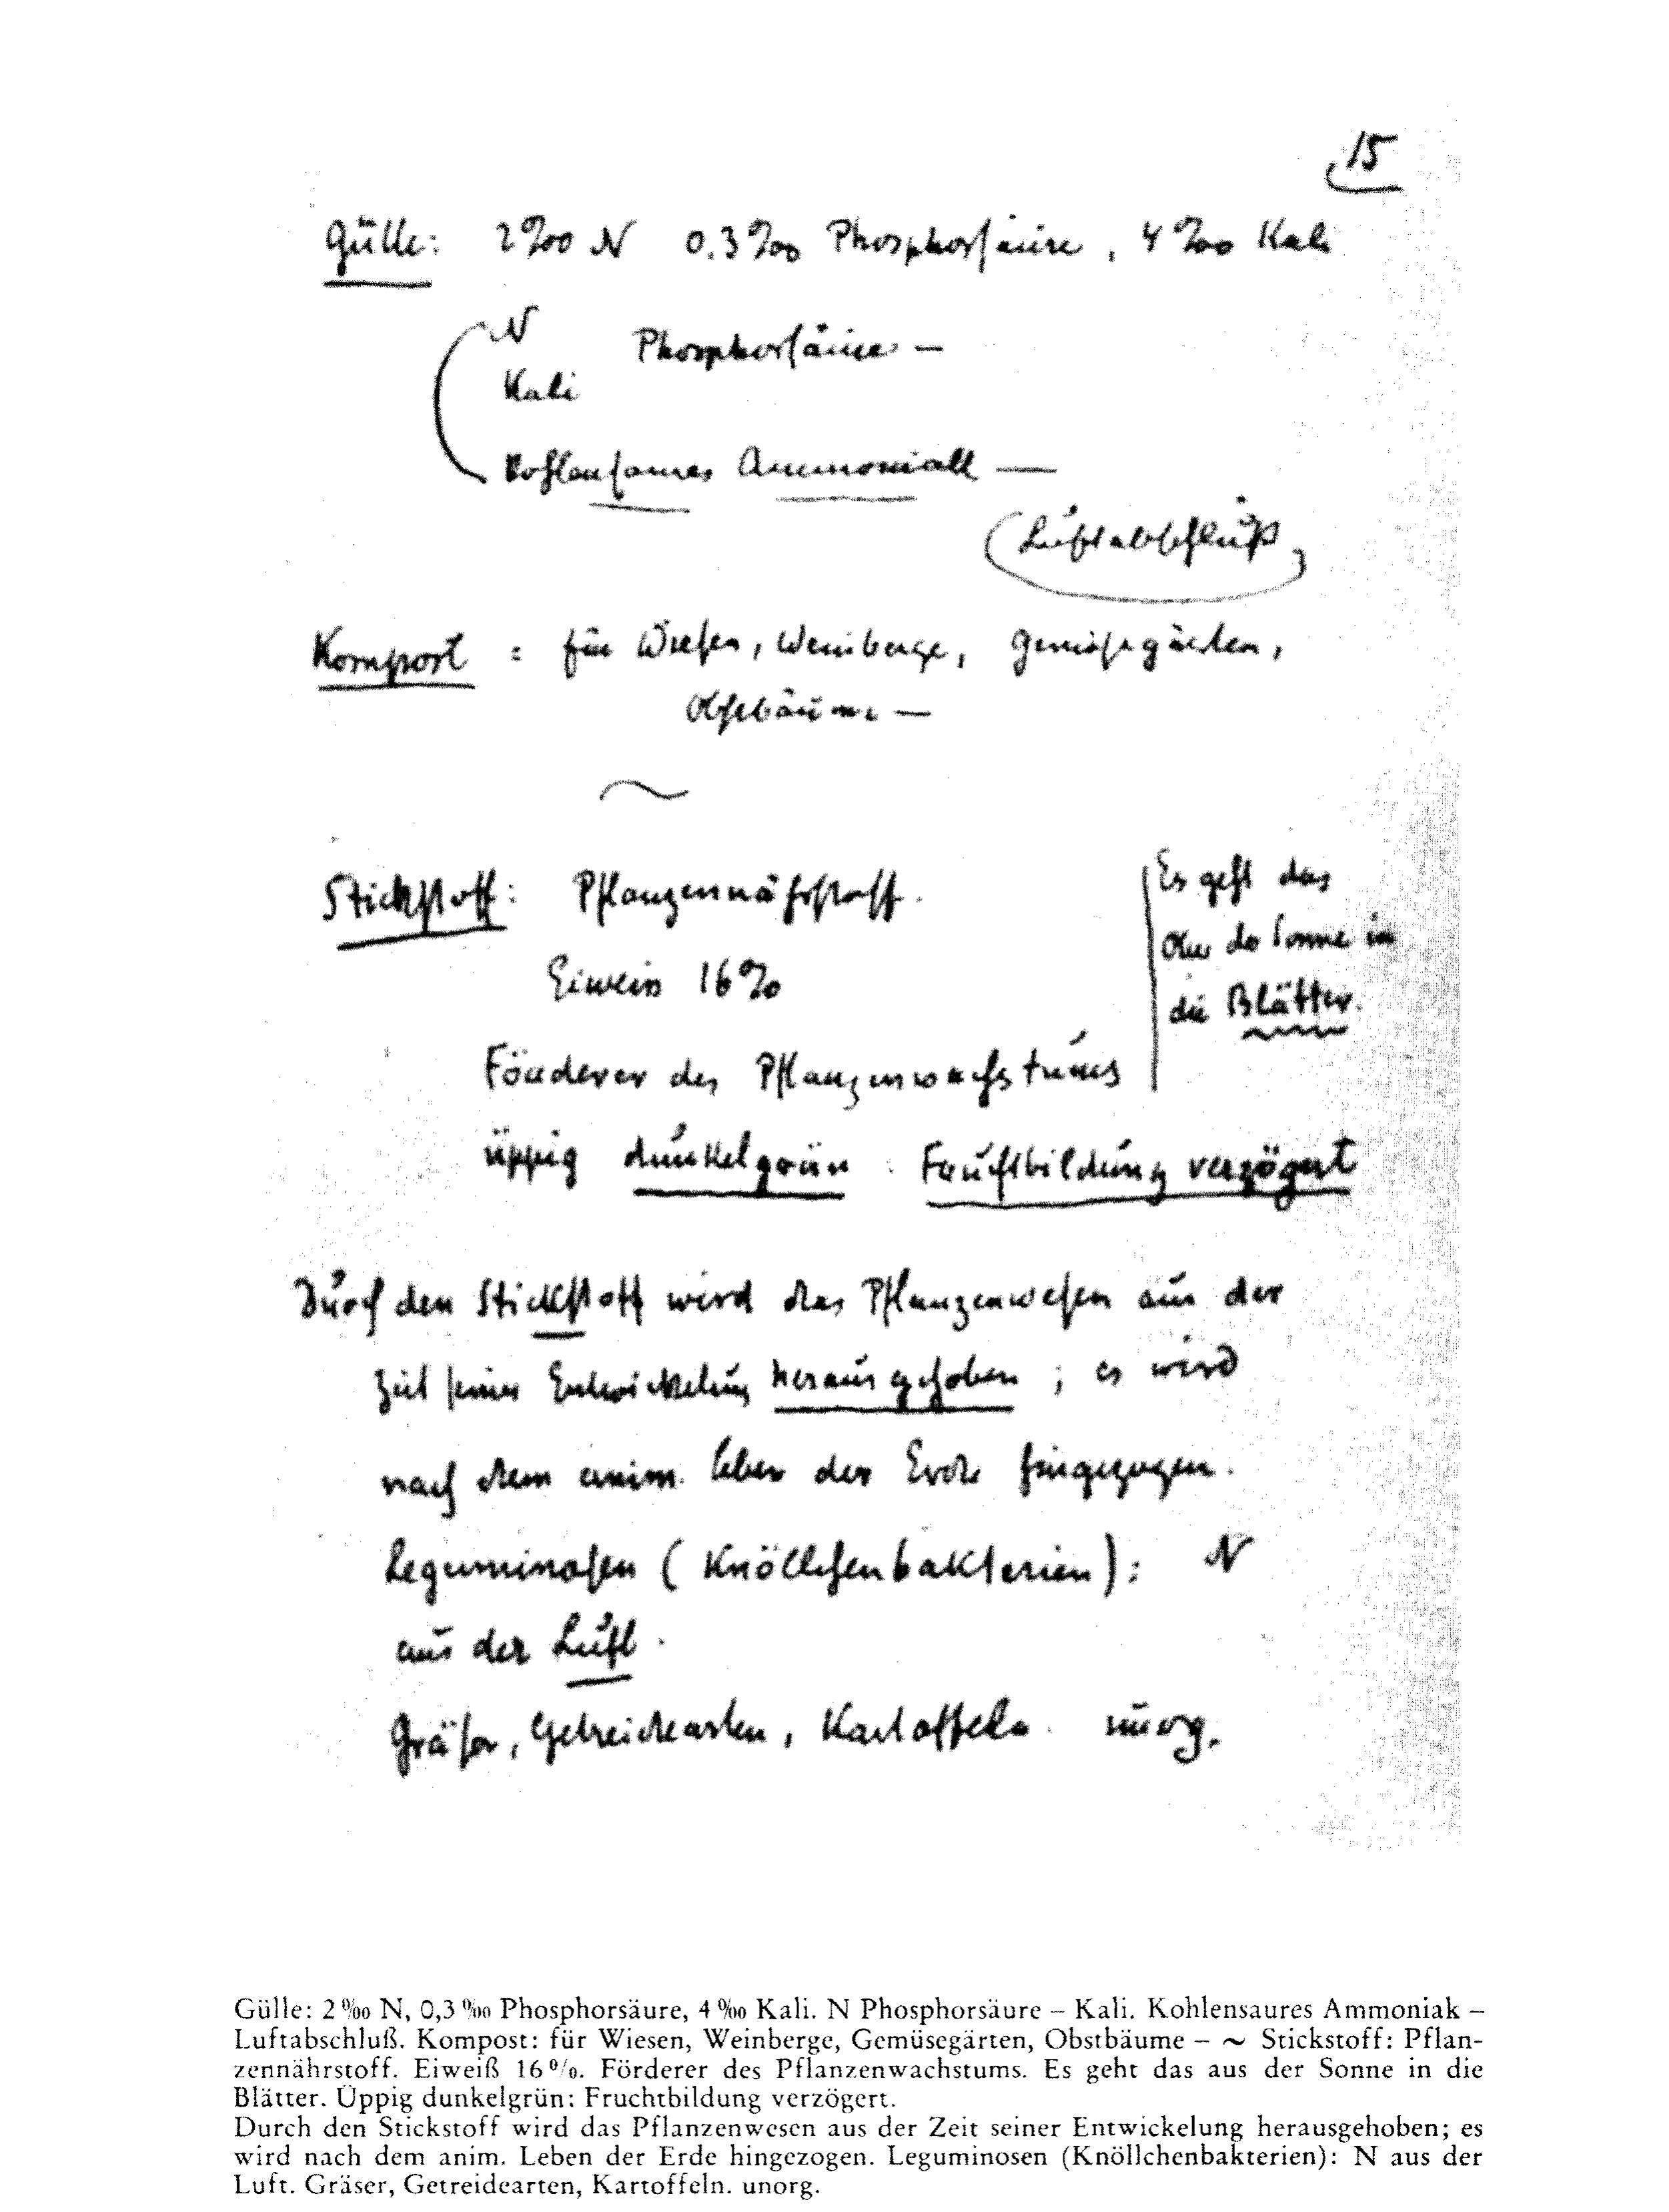 15
Gülle: 2‰ N 0.3‰ Phosphorsäure, 4‰ Kali
N
Phosphorsäure –
Kali
Kohlensaures Ammoniak —
(Luftabschluß)
Kompost : für Wiesen, Weinberge, Gemüsegärten,
Obstbäume –
~
Stickstoff: Pflanzennährstoff.
Es geht das
aus der Sonne in
die Blätter.
Eiweiss 16%
Förderer des Pflanzenwachstums
üppig dunkelgrün : Fruchtbildung verzögert
Durch den Stickstoff wird das Pflanzenwesen aus der
Zeit seiner Entwickelung herausgehoben ; es wird
nach dem anim. Leben der Erde hingezogen.
Leguminosen (Knöllchenbakterien): N
aus der Luft.
Gräser, Getreidearten, Kartoffeln. unorg.
Gülle: 2‰ N, 0,3‰ Phosphorsäure, 4‰ Kali. N Phosphorsäure – Kali. Kohlensaures Ammoniak –
Luftabschluß. Kompost: für Wiesen, Weinberge, Gemüsegärten, Obstbäume – ~ Stickstoff: Pflan-
zennährstoff. Eiweiß 16%. Förderer des Pflanzenwachstums. Es geht das aus der Sonne in die
Blätter. Üppig dunkelgrün: Fruchtbildung verzögert.
Durch den Stickstoff wird das Pflanzenwesen aus der Zeit seiner Entwickelung herausgehoben; es
wird nach dem anim. Leben der Erde hingezogen. Leguminosen (Knöllchenbakterien): N aus der
Luft. Gräser, Getreidearten, Kartoffeln. unorg.